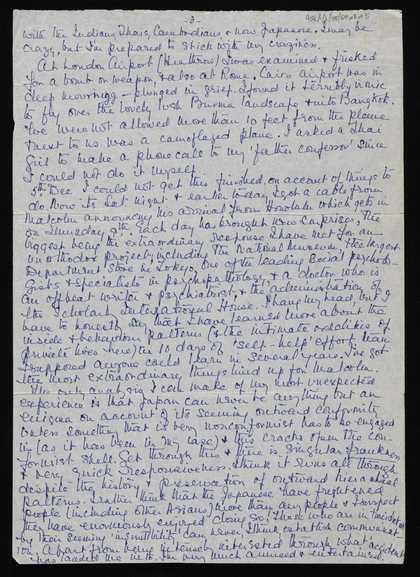 - 3 -
with the Indians, Thais, Cambodians, & now Japanese. I may be
crazy, but I'm prepared to stick with my craziness.
At London Airport (Heathrow) I was examined & frisked
for a bomb or weapon & also at Rome. Cairo airport was in
deep mourning - plunged in grief. I found it terribly ironic
to fly over the lovely lush Burma landscape & into Bangkok.
We were not allowed more than 10 feet from the plane
& next to us was a camouflaged plane. I asked a Thai
girl to make a phone call to my father confessor since
I could not do it myself.
5th Dec. I could not get this finished, on account of things to
do. Now its Sat night & earlier today I got a cable from
Malcolm announcing his arrival from Honolulu which gets in
on Thursday 9th. Each day has brought some surprises, the
biggest being the extraordinary response I have met for an
unorthodox project, including the National Museum, the largest
Department Store in Tokyo, one of the leading social psycholo-
gists & specialists in psychopathology, & a doctor who is
an offbeat writer & psychiatrist, & the administration of
the scholars International House. I hang my head but I
have to honestly say that I have learned more about the
inside & behaviour patterns (& the intimate realities of
private lives here) in 10 days of 'self-help' effort than
I supposed anyone could learn in several years. I've got
the most extraordinary things lined up for Malcolm.
The only analysis I can make of my most unexpected
experience is that Japan can never be anything but an
enigma on account of its seeming outward conformity
unless something that is very nonconformist has to be engaged
in (as it has been in my case) & this cracks open the con-
formist shell. Get through this & there is singular frankness
& very quick responsiveness. I think it runs all through
despite the history & preservation of outward hierarchical
patterns. I rather think that the Japanese have frightened
people (including other Asians) more than any people & I suspect
they have enormously enjoyed doing so! Those who are intimidated
by their seeming inscrutibility can never I think establish communicat-
ion. Apart from being intensely interested through what accident
has landed me with, I'm very much amused & entertained